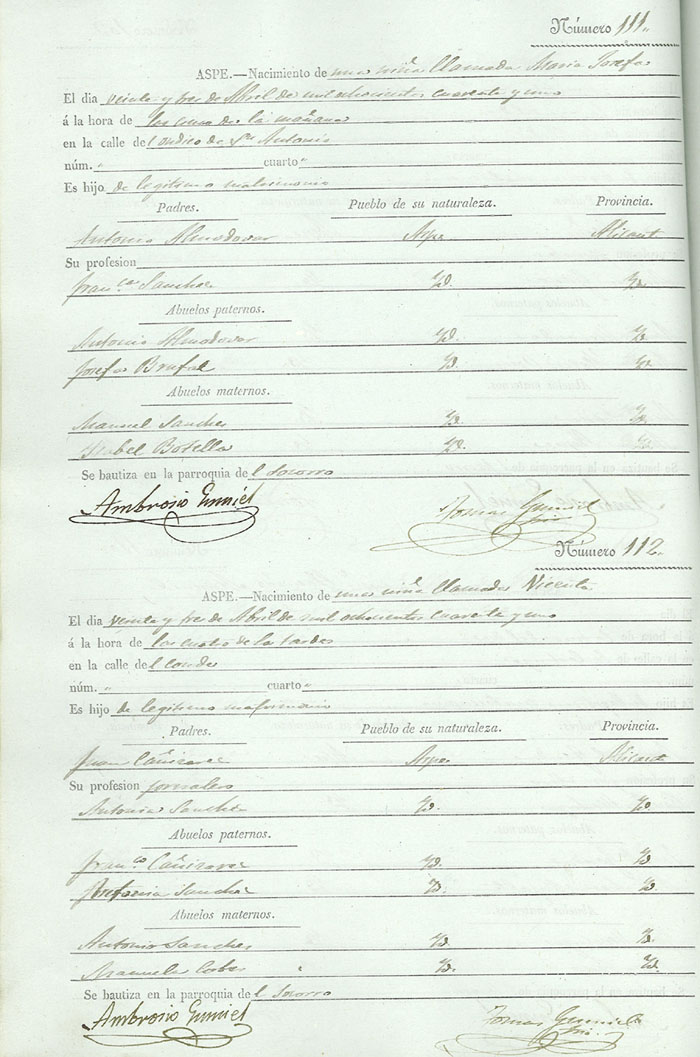 Número 111.
ASPE.—Nacimiento de una niña llamada Maria Josefa
El dia veinte y tres de Abril de mil ochocientos cuarenta y uno
á la hora de las once de la mañana
en la calle del Sn Antonio
núm. " cuarto "
Es hijo de legitimo matrimonio
Padres. Pueblo de su naturaleza. Provincia.
Antonio Almodovar Aspe Alicante
Su profesion
Franca Sanchez Yd. Yd.
Abuelos paternos.
Antonio Almodovar Yd. Yd.
Josefa Brufal Yd. Yd.
Abuelos maternos.
Manuel Sanchez Yd. Yd.
Ysabel Botella Yd. Yd.
Se bautiza en la parroquia del Socorro
Ambrosio Gumiel Tomas Gumiel
Número 112.
ASPE.—Nacimiento de una niña llamada Vicenta
El dia veinte y tres de Abril de mil ochocientos cuarenta y uno
á la hora de las cuatro de la tarde
en la calle del Conde
núm. " cuarto "
Es hijo de legitimo matrimonio
Padres. Pueblo de su naturaleza. Provincia.
Juan Cañizares Aspe Alicante
Su profesion jornalero
Antonia Sanchez Yd. Yd.
Abuelos paternos.
Franco Cañizares Yd. Yd.
Sanchez Yd. Yd.
Abuelos maternos.
Antonio Sanchez Yd. Yd.
Manuela Yd. Yd.
Se bautiza en la parroquia del Socorro
Ambrosio Gumiel Tomas Gumiel